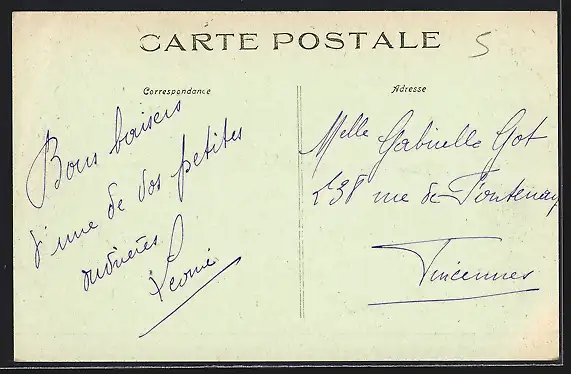 CARTE POSTALE
5
Correspondance
Adresse
Bons baisers
d'une de vos petites
ouvrières
Léonie
Melle Gabrielle Got
238 rue de Fontenay
Vincennes